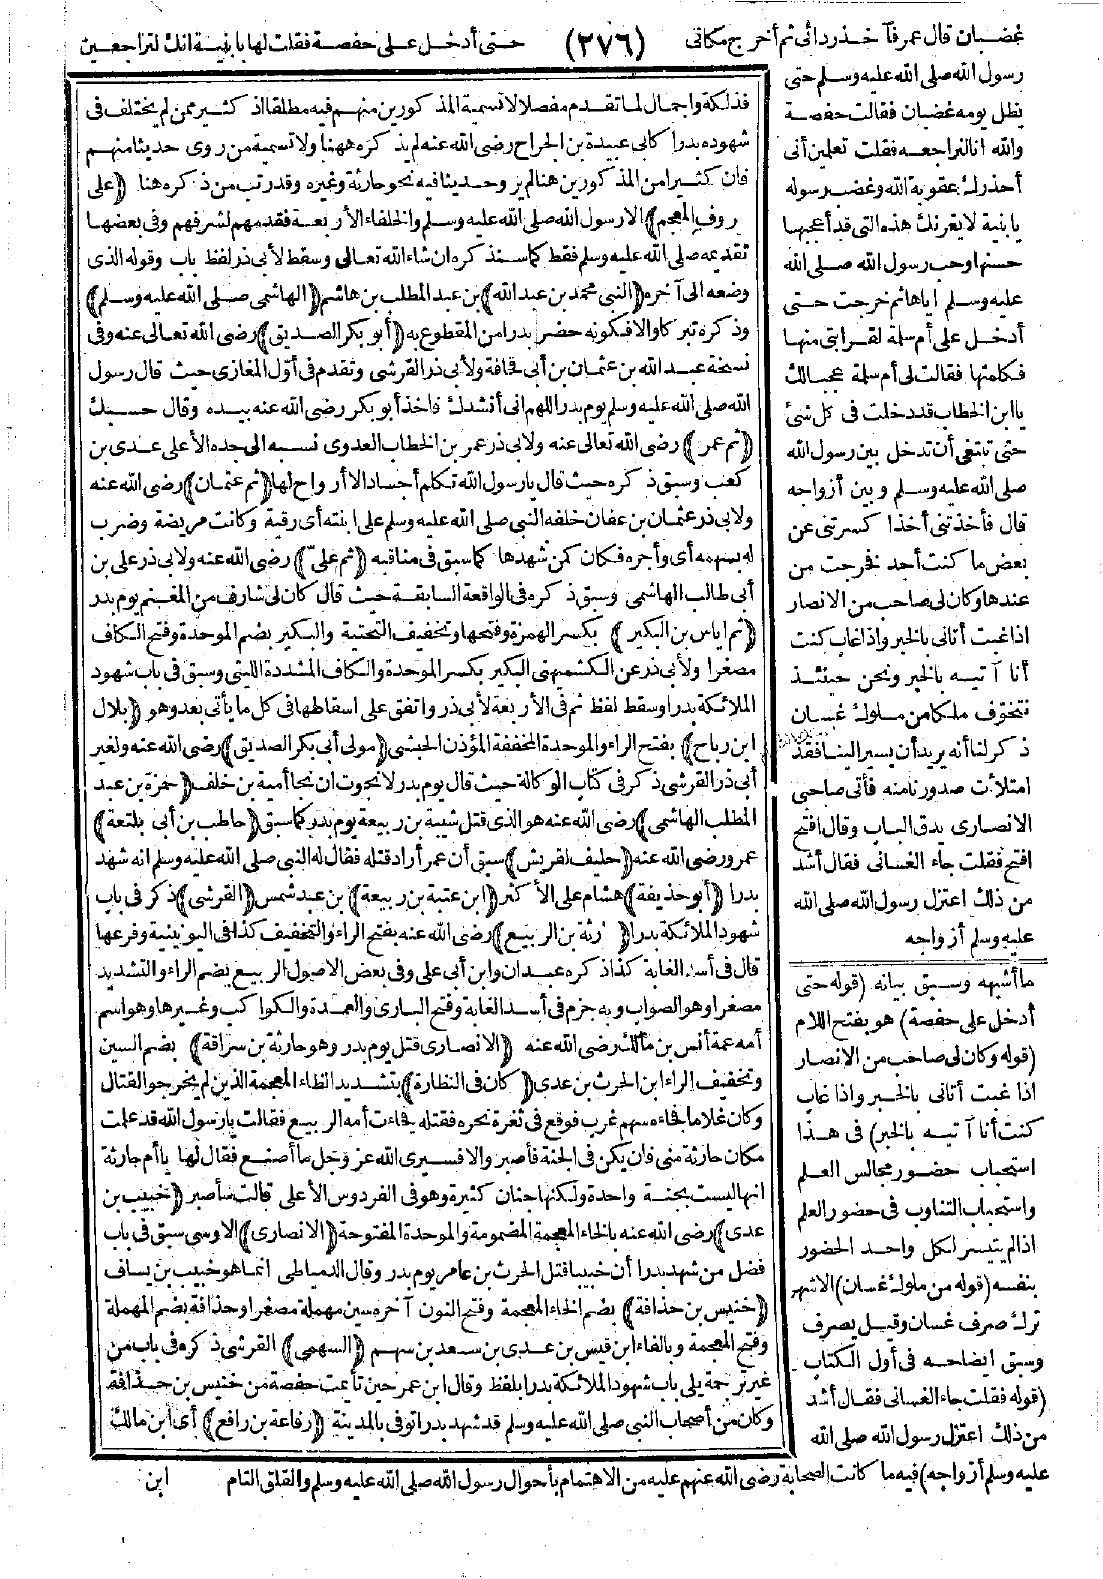 غضبان قال عمر فآخذ ردائى ثم أخرج مكانى
(٢٧٦)
حتى أدخل على حفصة فقلت لها يا بنية انك لتراجعين
رسول الله صلى الله عليه وسلم حتى
يظل يومه غضبان فقالت حفصة
والله انا لنراجعه فقلت تعلمين أنى
أحذرك عقوبة الله وغضب رسوله
يا بنية لا يغرنك هذه التى قد أعجبها
حسنها وحب رسول الله صلى الله
عليه وسلم اياها ثم خرجت حتى
أدخل على أم سلمة لقرابتى منها
فكلمتها فقالت لى أم سلمة عجبا لك
يا ابن الخطاب قد دخلت فى كل شئ
حتى تبتغى أن تدخل بين رسول الله
صلى الله عليه وسلم وبين أزواجه
قال فأخذتنى أخذا كسرتنى عن
بعض ما كنت أجد فخرجت من
عندها وكان لى صاحب من الانصار
اذا غبت أتانى بالخبر واذا غاب كنت
أنا آتيه بالخبر ونحن حينئذ
نتخوف ملكا من ملوك غسان
ذكر لنا أنه يريد أن يسير الينا فقد
امتلأت صدورنا منه فأتى صاحبى
الانصارى يدق الباب وقال افتح
افتح فقلت جاء الغسانى فقال أشد
من ذلك اعتزل رسول الله صلى الله
عليه وسلم أزواجه
ما أشبهه وسبق بيانه (قوله حتى
أدخل على حفصة) هو بفتح اللام
(قوله وكان لى صاحب من الانصار
اذا غبت أتانى بالخبر واذا غاب
كنت أنا آتيه بالخبر) فى هذا
استحباب حضور مجالس العلم
واستحباب التناوب فى حضور العلم
اذا لم يتيسر لكل واحد الحضور
بنفسه (قوله من ملوك غسان) الاشهر
ترك صرف غسان وقيل يصرف
وسبق ايضاحه فى أول الكتاب
(قوله فقلت جاء الغسانى فقال أشد
من ذلك اعتزل رسول الله صلى الله
عليه وسلم أزواجه) فيه ما كانت الصحابة رضى الله عنهم عليه من الاهتمام بأحوال رسول الله صلى الله عليه وسلم والقلق التام
فذلكة واجمال لما تقدم مفصلا لا تسمية المذكورين منهم فيه مطلقا اذ كثير ممن لم يختلف فى
شهوده بدرا كابى عبيدة بن الجراح رضى الله عنه لم يذكره ههنا ولا تسمية من روى حديثا منهم
فان كثيرا من المذكورين هنا لم يرو حديثا فيه نحو حارثة وغيره وقد رتب من ذكره هنا (على
روف المعجم) الا رسول الله صلى الله عليه وسلم والخلفاء الأربعة فقدمهم لشرفهم وفى بعضها
تقديمه صلى الله عليه وسلم فقط كما سنذكره ان شاء الله تعالى وسقط لأبى ذر لفظ باب وقوله الذى
وضعه الى آخره (النبى محمد بن عبد الله) بن عبد المطلب بن هاشم (الهاشمى صلى الله عليه وسلم)
وذكره تبركا والا فكونه حضر بدرا من المقطوع به (أبو بكر الصديق) رضى الله تعالى عنه وفى
نسخة عبد الله بن عثمان بن أبى قحافة ولأبى ذر القرشى وتقدم فى أول المغازى حيث قال رسول
الله صلى الله عليه وسلم يوم بدر اللهم انى أنشدك فاخذ أبو بكر رضى الله عنه بيده وقال حسبك
(ثم عمر) رضى الله تعالى عنه ولابى ذر عمر بن الخطاب العدوى نسبه الى جده الأعلى عدى بن
كعب وسبق ذكره حيث قال يا رسول الله تكلم أجسادا لا أرواح لها (ثم عثمان) رضى الله عنه
ولابى ذر عثمان بن عفان خلفه النبى صلى الله عليه وسلم على ابنته أى رقية وكانت مريضة وضرب
له بسهمه أى وأجره فكان كمن شهدها كما سبق فى مناقبه (ثم على) رضى الله عنه ولابى ذر على بن
أبى طالب الهاشمى وسبق ذكره فى الواقعة السابقة حيث قال كان لى شارف من المغنم يوم بدر
(ثم اياس بن البكير) بكسر الهمزة وفتحها وتخفيف التحتية والبكير بضم الموحدة وفتح الكاف
مصغرا ولأبى ذر عن الكشميهنى البكير بكسر الموحدة والكاف المشددة الليثى وسبق فى باب شهود
الملائكة بدرا وسقط لفظ ثم فى الأربعة لأبى ذر واتفق على اسقاطها فى كل ما يأتى بعد وهو (بلال
ابن رباح) بفتح الراء والموحدة المخففة المؤذن الحبشى (مولى أبى بكر الصديق) رضى الله عنه ولغير
أبى ذر القرشى ذكر فى كتاب الوكالة حيث قال يوم بدر لا نجوت ان نجا أمية بن خلف (حمزة بن عبد
المطلب الهاشمى) رضى الله عنه هو الذى قتل شيبة بن ربيعة يوم بدر كما سبق (حاطب بن أبى بلتعة)
عمرو رضى الله عنه (حليف لقريش) سبق أن عمر أراد قتله فقال له النبى صلى الله عليه وسلم انه شهد
بدرا (أبو حذيفة) هشام على الأكثر (ابن عتبة بن ربيعة) بن عبد شمس (القرشى) ذكر فى باب
شهود الملائكة بدرا (رثة بن الربيع) رضى الله عنه بفتح الراء والتخفيف كذا فى اليونينية وفرعها
قال فى أسد الغابة كذا ذكره عبدان وابن أبى على وفى بعض الاصول الربيع بضم الراء والتشديد
مصغرا وهو الصواب وبه جزم فى أسد الغابة وفتح البارى والعمدة والكواكب وغيرها وهو اسم
أمه عمة أنس بن مالك رضى الله عنه (الانصارى قتل يوم بدر وهو حارثة بن سراقة) بضم السين
وتخفيف الراء ابن الحرث بن عدى (كان فى النظارة) بتشديد الظاء المعجمة الذين لم يخرجوا لقتال
وكان غلاما فجاءه سهم غرب فوقع فى ثغرة نحره فقتله فجاءت أمه الربيع فقالت يا رسول الله قد علمت
مكان حارثة منى فان يكن فى الجنة فأصبر والا فسيرى الله عز وجل ما أصنع فقال لها يا أم حارثة
انها ليست بجنة واحدة ولكنها جنان كثيرة وهو فى الفردوس الأعلى قالت سأصبر (خبيب بن
عدى) رضى الله عنه بالخاء المعجمة المضمومة والموحدة المفتوحة (الانصارى) الاوسى سبق فى باب
فضل من شهد بدرا أن خبيبا قتل الحرث بن عامر يوم بدر وقال الدمياطى انما هو خبيب بن يساف
(خنيس بن حذافة) بضم الخاء المعجمة وفتح النون آخره سين مهملة مصغرا وحذافة بضم المهملة
وفتح المعجمة وبالفاء ابن قيس بن عدى بن سعد بن سهم (السهمى) القرشى ذكره فى باب من
غير ترجمة يلى باب شهود الملائكة بدرا بلفظ وقال ابن عمر حين تأيمت حفصة من خنيس بن حذافة
وكان من أصحاب النبى صلى الله عليه وسلم قد شهد بدرا توفى بالمدينة (رفاعة بن رافع) أى ابن مالك
ابن